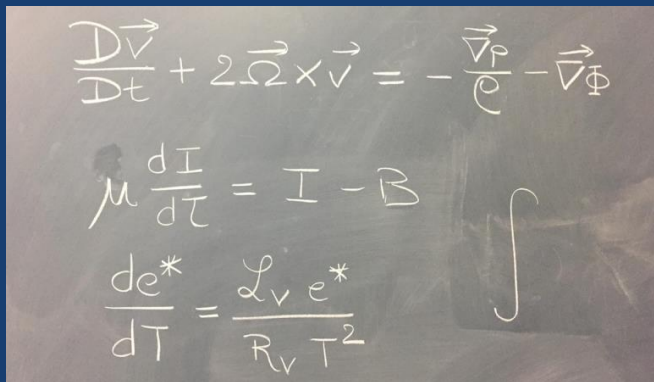 Dv⃗/Dt + 2Ω⃗ × v⃗ = − ∇⃗p/ρ − ∇⃗Φ
μ dI/dτ = I − B
∫
de*/dT = ℒᵥ e*/Rᵥ T²